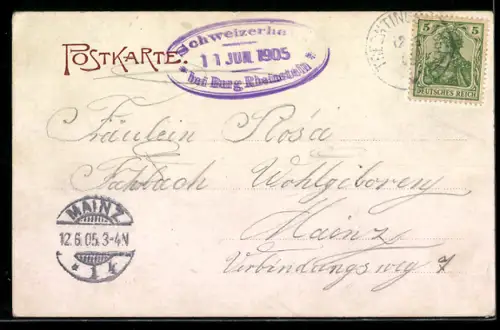 POSTKARTE.
Schweizerha
11 JUN. 1905
* bei Burg Rheinstein *
12
5 5
DEUTSCHES REICH
Fräulein Rosa
Fahbach Wohlgeboren
Mainz
Verbindungsweg 7
MAINZ
12.6.05.3-4N
* 1 k